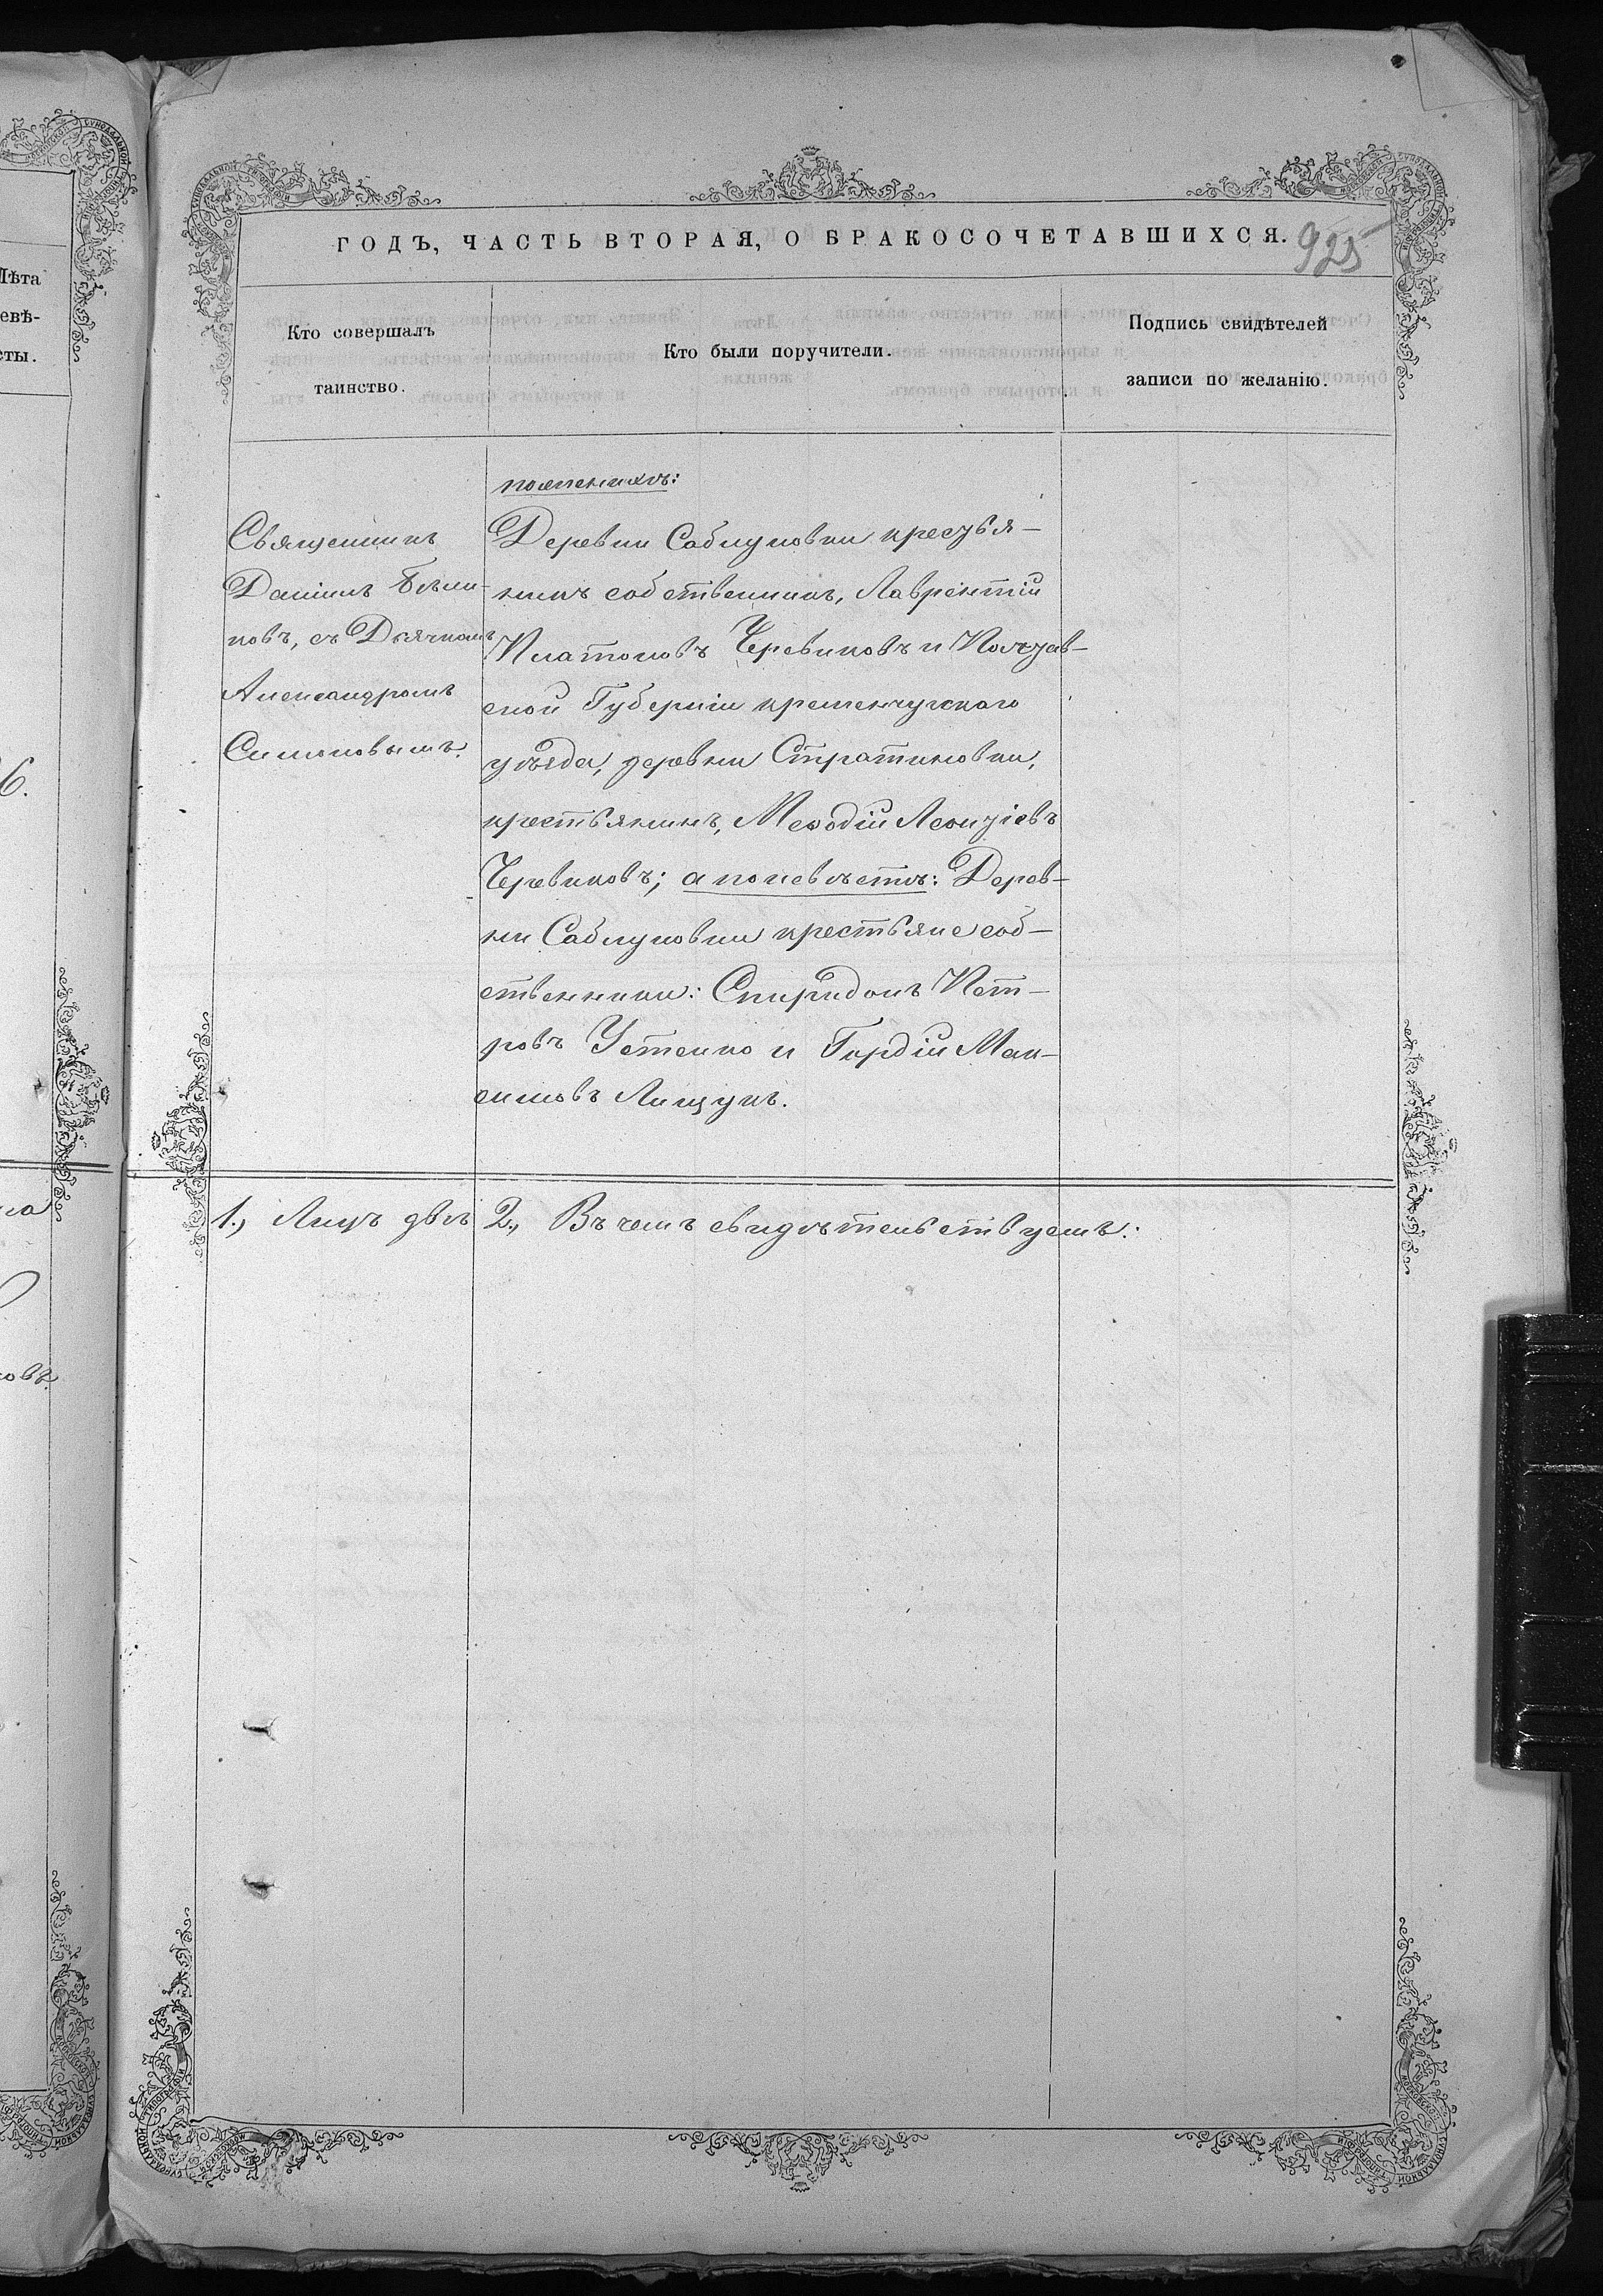 Лѣта
евѣ-
сты.
6.
ГОДЪ, ЧАСТЬ ВТОРАЯ, О БРАКОСОЧЕТАВШИХСЯ.
925
Кто совершалъ
таинство.
Кто были поручители.
Подпись свидѣтелей
записи по желанію.
Священникъ
Даніилъ
новъ, съ Дьячкомъ
Александромъ
Симоновымъ.
по женихѣ:
Деревни Саблуковки кресья-
нинъ собственникъ, Лаврентій
Платоновъ Черевиковъ и Полтав-
ской Губерніи кременчугскаго
уѣзда, деревни
крестьянинъ, Меѳодій Леонтіевъ
Черевиковъ; а по невѣстѣ: Дерев-
ни Саблуковки крестьяне соб-
ственники: Спиридонъ Пет-
ровъ Устенко и Гордій Мак-
симовъ Лищукъ.
1., Лицъ двѣ
2., Въ чемъ свидѣтельствуемъ: